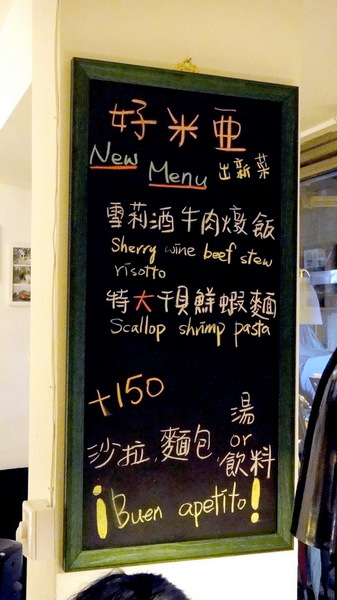 好米亜
New Menu 出新菜
雪莉酒牛肉燉飯
Sherry wine beef stew
risotto
特大干貝鮮蝦麵
Scallop shrimp pasta
+150
沙拉,麵包,湯 or 飲料
¡Buen apetito!